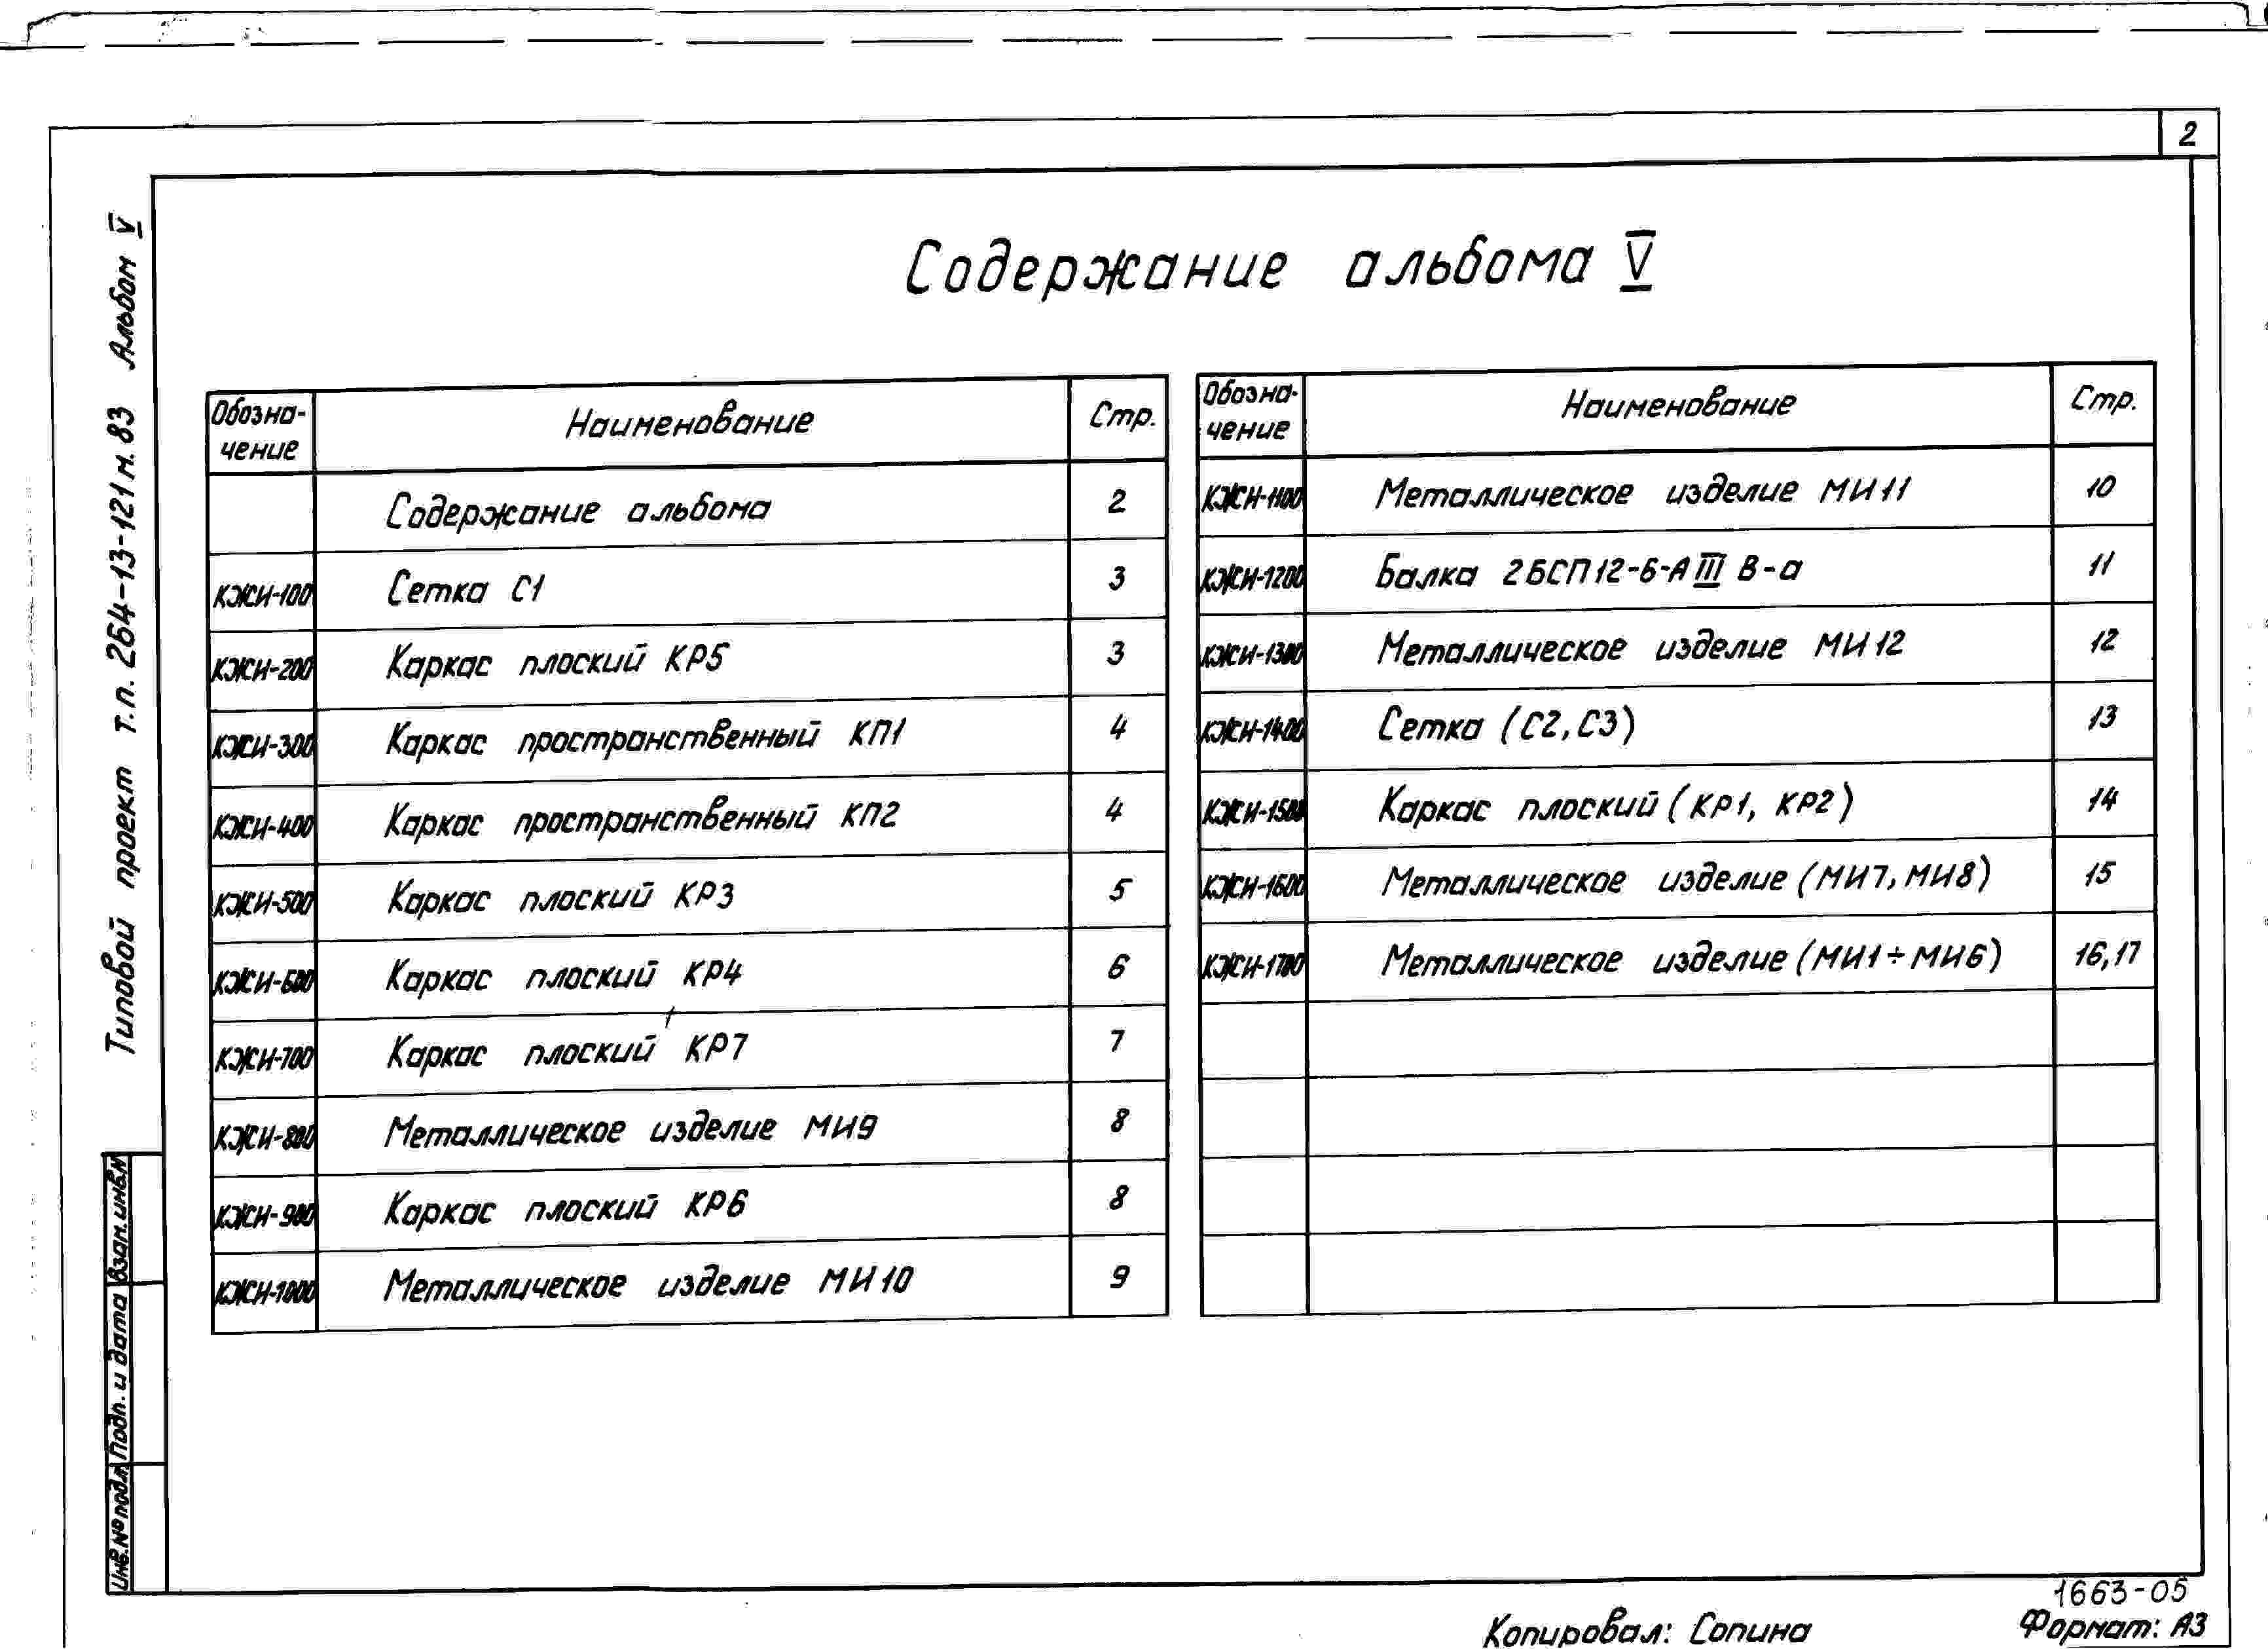 2
Содержание альбома V
Типовой проект т.п. 264-13-121м.83 Альбом V
Обозна-чение Наименование Стр.
Содержание альбома 2
КЖИ-100 Сетка С1 3
КЖИ-200 Каркас плоский КР5 3
КЖИ-300 Каркас пространственный КП1 4
КЖИ-400 Каркас пространственный КП2 4
КЖИ-500 Каркас плоский КР3 5
КЖИ-600 Каркас плоский КР4 6
КЖИ-700 Каркас плоский КР7 7
КЖИ-800 Металлическое изделие МИ9 8
КЖИ-900 Каркас плоский КР6 8
КЖИ-1000 Металлическое изделие МИ10 9
Обозна-чение Наименование Стр.
КЖИ-1100 Металлическое изделие МИ11 10
КЖИ-1200 Балка 2БСП12-6-АIIIВ-а 11
КЖИ-1300 Металлическое изделие МИ12 12
КЖИ-1400 Сетка (С2, С3) 13
КЖИ-1500 Каркас плоский (КР1, КР2) 14
КЖИ-1600 Металлическое изделие (МИ7, МИ8) 15
КЖИ-1700 Металлическое изделие (МИ1÷МИ6) 16,17
Взам.инв.№
Подп. и дата
Инв.№подл.
1663-05
Копировал: Сопина
Формат: А3